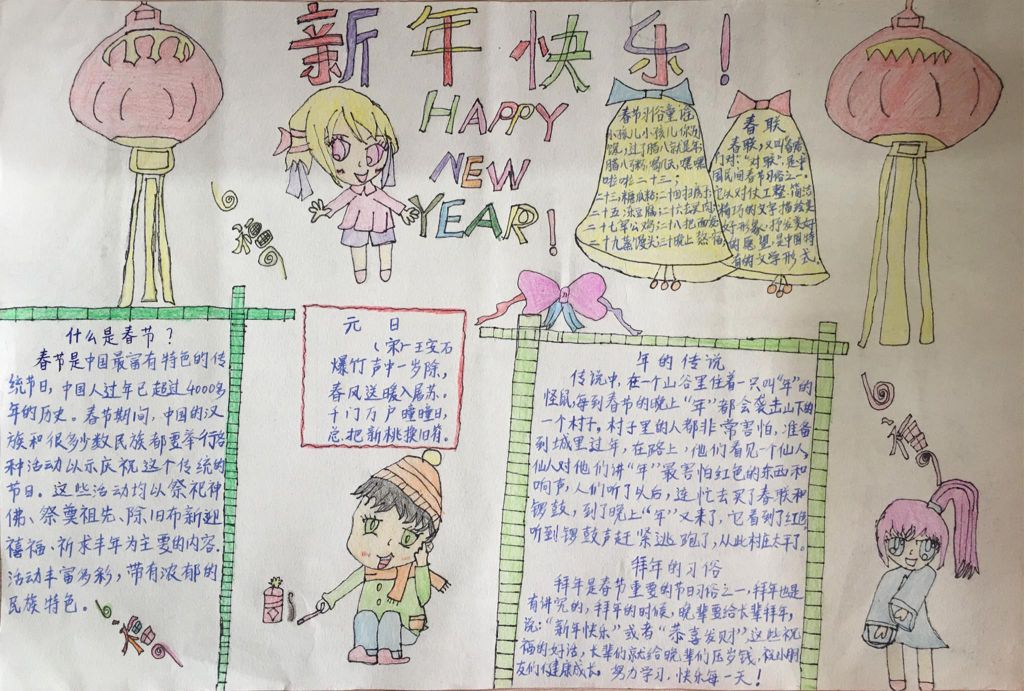 新年快乐!
HAPPY
NEW
YEAR!
春节习俗童谣
小孩儿小孩儿你别
馋,过了腊八就是年;
腊八粥,喝几天,哩哩
啦啦二十三;
二十三,糖瓜粘;二十四扫房子;
二十五,冻豆腐;二十六去买肉;
二十七宰公鸡;二十八把面发;
二十九蒸馒头;三十晚上熬一宿
春联
春联,又叫"春贴"
门对""对联",是中
国民间春节习俗之一。
它以对仗工整、简洁
精巧的文字描绘美
好形象,抒发美好
的愿望,是中国特
有的文学形式。
福
什么是春节?
春节是中国最富有特色的传
统节日,中国人过年已超过4000多
年的历史。春节期间,中国的汉
族和很多少数民族都要举行各
种活动以示庆祝这个传统的
节日。这些活动均以祭祀神
佛、祭奠祖先、除旧布新迎
禧福、祈求丰年为主要的内容.
活动丰富多彩,带有浓郁的
民族特色。
福
元日
(宋)王安石
爆竹声中一岁除,
春风送暖入屠苏.
千门万户曈曈日,
总把新桃换旧符.
年的传说
传说中,在一个山谷里住着一只叫"年"的
怪鼠,每到春节的晚上"年"都会袭击山下的
一个村庄。村子里的人都非常害怕,准备
到城里过年,在路上,他们看见一个仙人,
仙人对他们讲"年"最害怕红色的东西和
响声,人们听了以后,连忙去买了春联和
锣鼓,到了晚上"年"又来了,它看到了红色
听到锣鼓声赶紧逃跑了,从此村庄太平了。
拜年的习俗
拜年是春节重要的节日习俗之一,拜年也是
有讲究的,拜年的时候,晚辈要给长辈拜年,
说:"新年快乐"或者"恭喜发财",这些祝
福的好话,长辈们就给晚辈们压岁钱,祝小朋
友们健康成长。努力学习,快乐每一天!
福